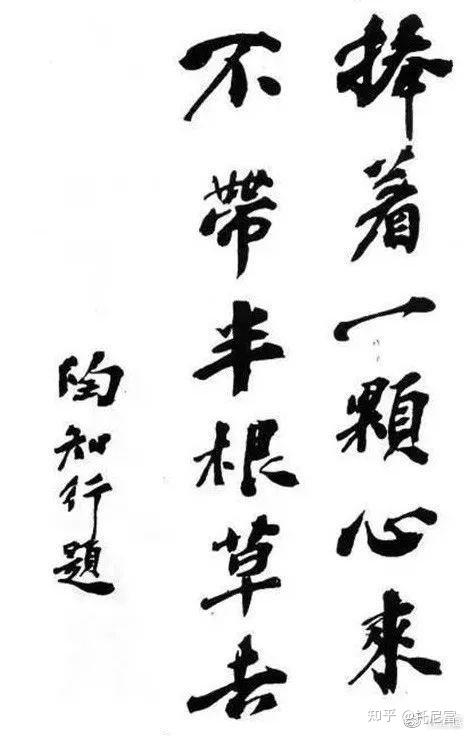 捧着一顆心來
不帶半根草去
陶知行題
知乎 @托尼富